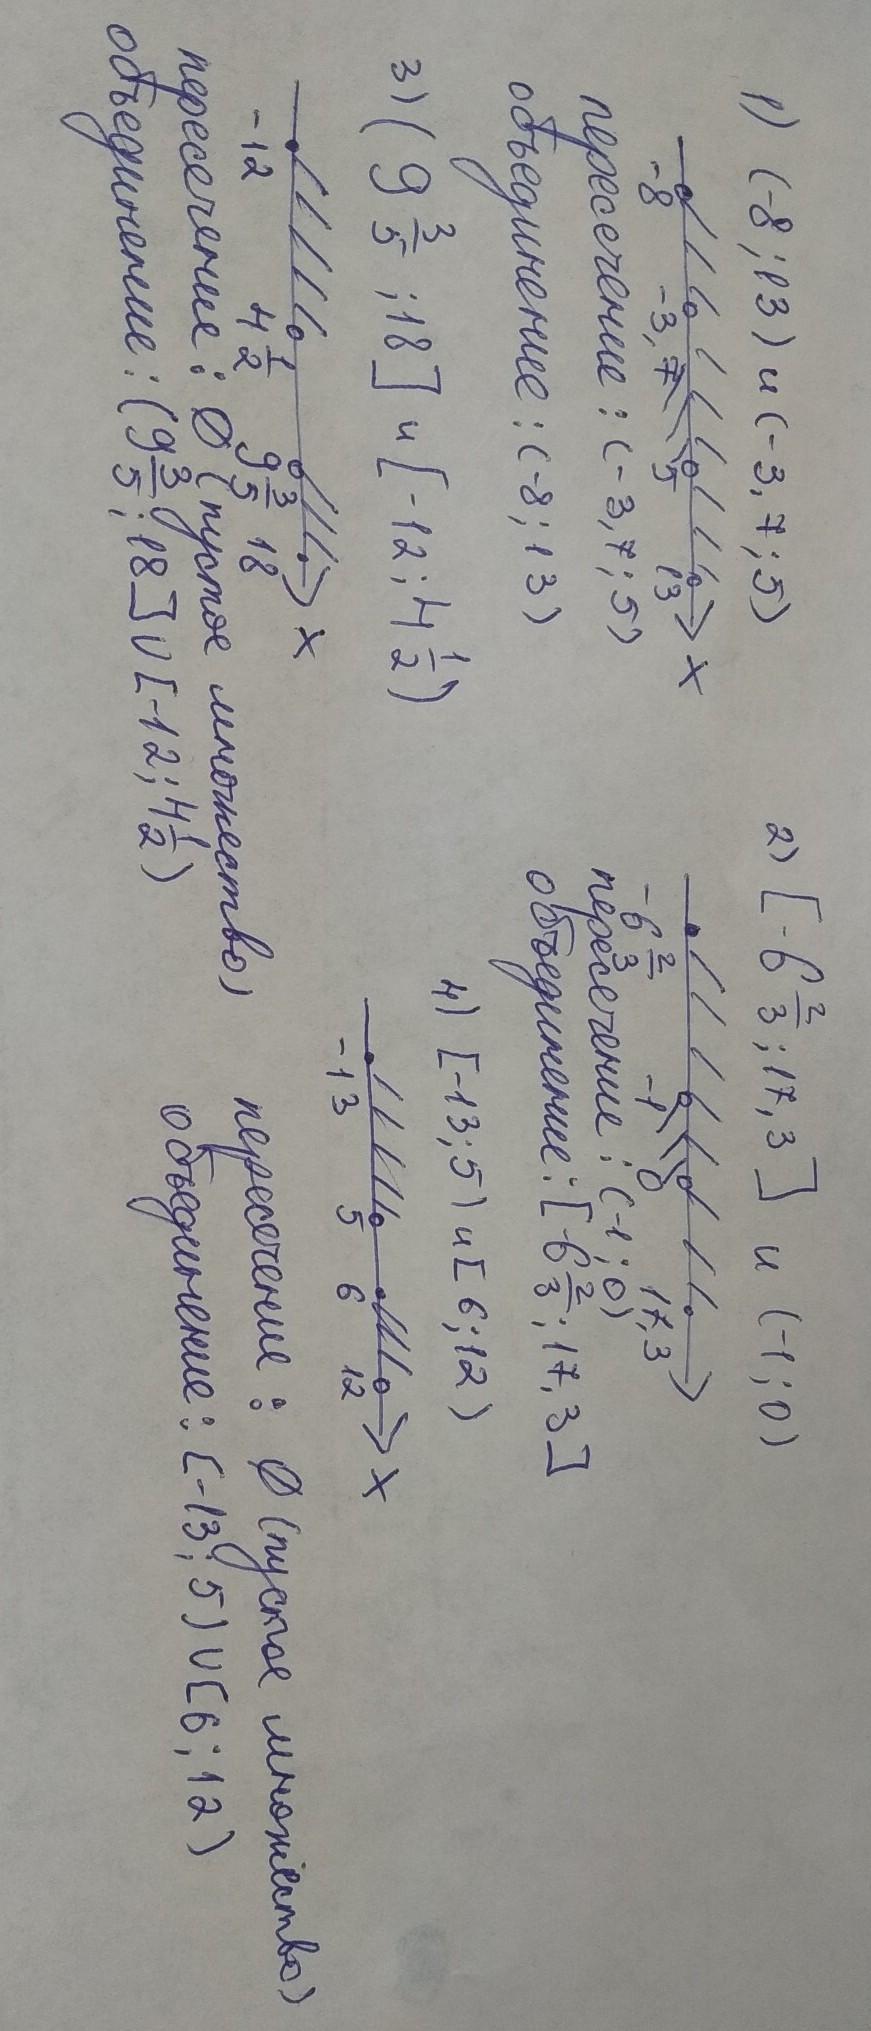 1) (-8; 13) и (-3,7; 5)
-8 -3,7 5 13 x
пересечение: (-3,7; 5)
объединение: (-8; 13)
2) [-6 2/3; 17,3] и (-1; 0)
-6 2/3 -1 0 17,3
пересечение: (-1; 0)
объединение: [-6 2/3; 17,3]
3) (9 3/5; 18] и [-12; 4 1/2)
-12 4 1/2 9 3/5 18 x
пересечение: Ø (пустое множество)
объединение: (9 3/5; 18] ∪ [-12; 4 1/2)
4) [-13; 5) и [6; 12)
-13 5 6 12 x
пересечение: Ø (пустое множество)
объединение: [-13; 5) ∪ [6; 12)